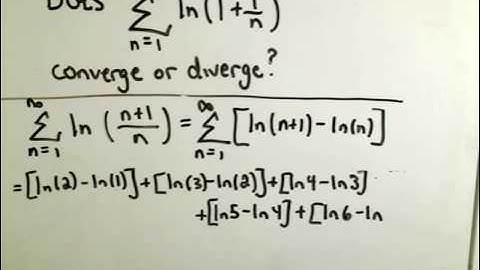 Does ∑_{n=1} ln(1+1/n)
converge or diverge?
∑_{n=1}^{∞} ln((n+1)/n) = ∑_{n=1}^{∞} [ln(n+1) - ln(n)]
= [ln(2) - ln(1)] + [ln(3) - ln(2)] + [ln4 - ln3]
+ [ln5 - ln4] + [ln6 - ln